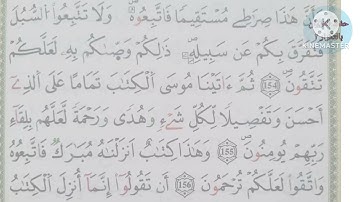 وَأَنَّ هَٰذَا صِرَٰطِي مُسْتَقِيمًا فَاتَّبِعُوهُ وَلَا تَتَّبِعُوا۟ السُّبُلَ
فَتَفَرَّقَ بِكُمْ عَن سَبِيلِهِ ذَٰلِكُمْ وَصَّىٰكُم بِهِ لَعَلَّكُمْ
تَتَّقُونَ 154 ثُمَّ ءَاتَيْنَا مُوسَى الْكِتَٰبَ تَمَامًا عَلَى الَّذِي
أَحْسَنَ وَتَفْصِيلًا لِّكُلِّ شَيْءٍ وَهُدًى وَرَحْمَةً لَّعَلَّهُم بِلِقَآءِ
رَبِّهِمْ يُومِنُونَ 155 وَهَٰذَا كِتَٰبٌ أَنزَلْنَٰهُ مُبَٰرَكٌ فَاتَّبِعُوهُ
وَاتَّقُوا۟ لَعَلَّكُمْ تُرْحَمُونَ 156 أَن تَقُولُوٓا۟ إِنَّمَآ أُنزِلَ الْكِتَٰبُ
KINEMASTER